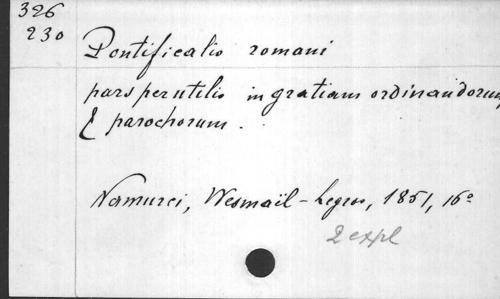 326
230
Pontificalis romani
pars perutilis in gratiam ordinandorum,
& parochorum.
Namurci, Wesmaël-Legros, 1851, 16º
2 expl